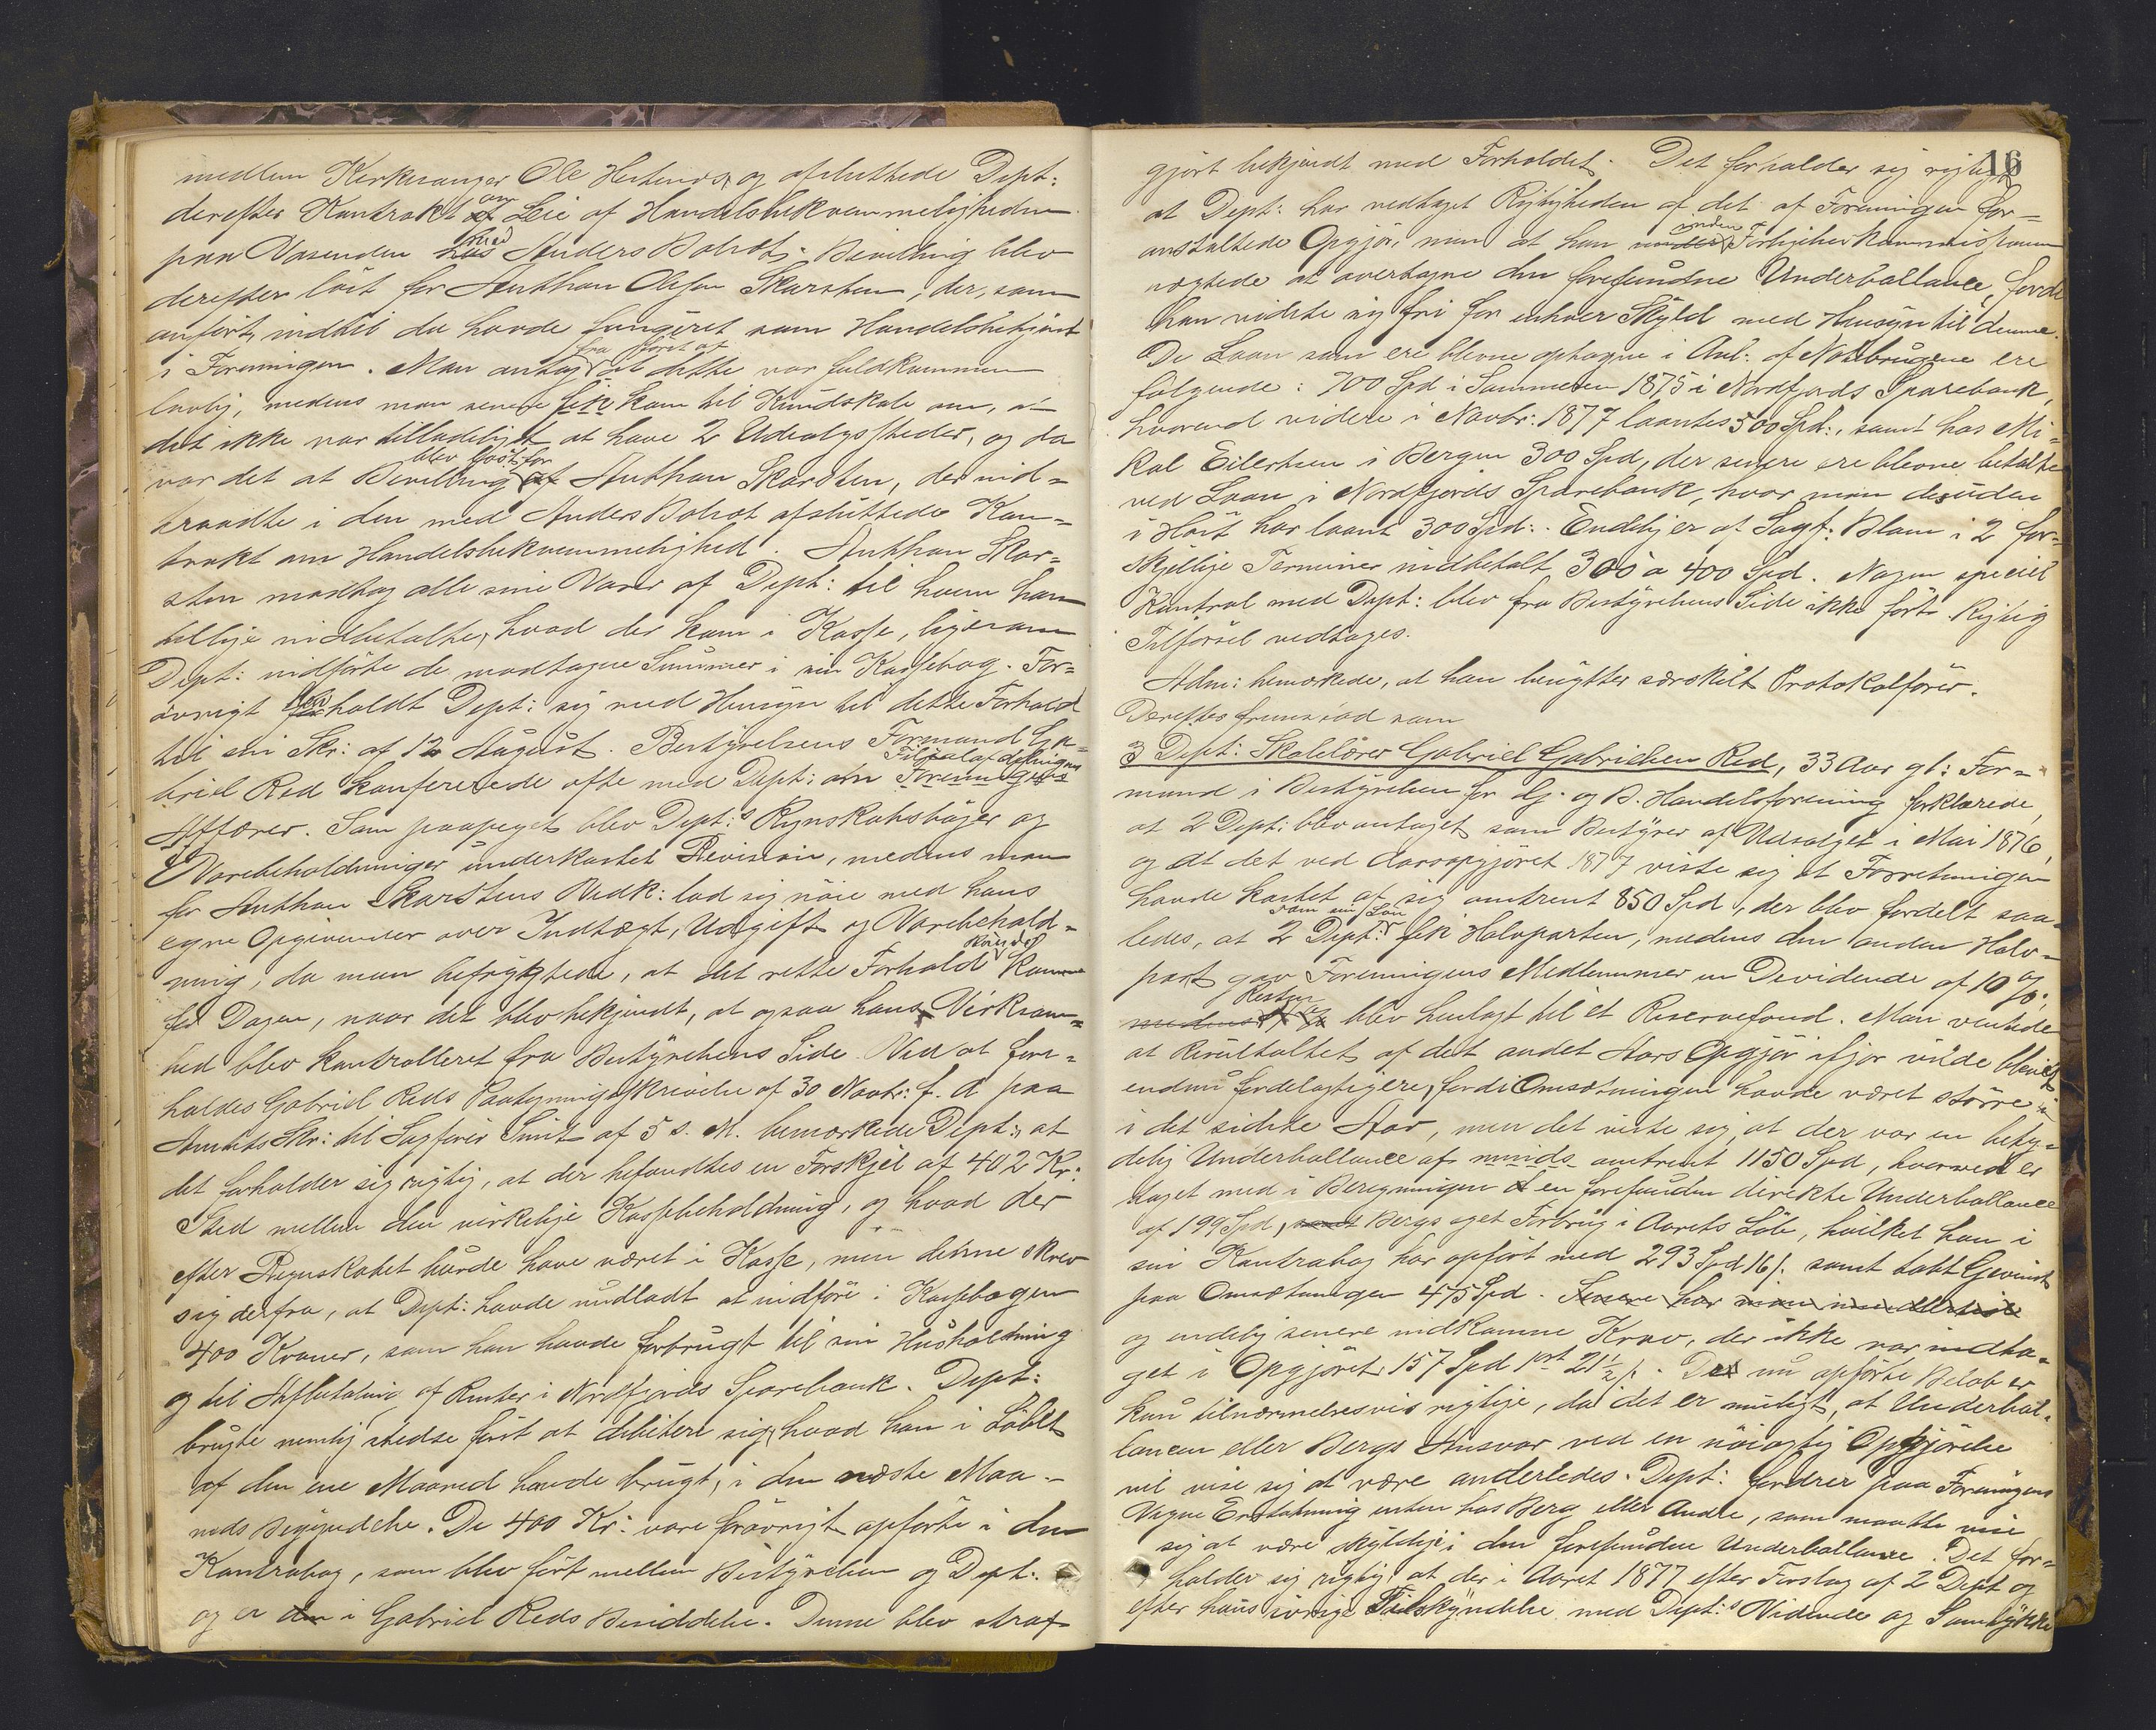 medlem Kirkesanger Ole Hestenes, og afsluttede Dept:
derefter Kontrakt af om Leie af Handelsbekvemmeligheden
paa Vasenden hos med Anders Bolsæt. Bevilling blev
derefter löst for Anthon Olsen Skarsten, der, som
anfört, indtil da havde fungeret som Handelsbetjent
i Foreningen. Man antog fra först af at dette var fuldkommen
lovlig, medens man senere fik kom til Kundskab om, at
det ikke var tilladeligt at have 2 Udsalgssteder, og da
var det at Bevilling af blev löst for Anthon Skarsten, der ind-
traadte i den med Anders Bolsæt afsluttede Kon-
trakt om Handelsbekvemmelighed. Anthon Skar-
sten modtog alle sine Varer af Dept: til hvem han
tillige indbetalte, hvad der kom i Kasse, ligesom
Dept: indförte de modtagne Summer i sin Kassebog. For-
övrigt holdt Dept: sig med Hensyn til dette Forhold
til sin Skr: af 12 August. Bestyrelsens Formand Ga-
briel Red konfererede ofte med Dept: om Foreningens Filialafdelingens
Affærer. Som paapeget blev Dept:s Regnskabsböger og
Varebeholdninger underkastet Revision, medens man
for Anthon Skarstens Vedk: lod sig nöie med hans
egne Opgivender over Indtægt, Udgift og Varebehold-
ning, da man befrygtede, at det rette Forhold skulde komme
for Dagen, naar det blev bekjendt, at ogsaa hans Virksom-
hed blev kontrolleret fra Bestyrelsens Side. Ved at fore-
holdes Gabriel Reds Paategningsskrivelse af 30 Novbr: f. A. paa
Amtets Skr: til Sagförer Smit af 5 s. M. bemærkede Dept:, at
det forholder sig rigtig, at der befandtes en Forskjel af 402 Kr:
Sted mellem den virkelige Kassebeholdning, og hvad der
efter Regnskabet burde have været i Kasse, men denne skrev
sig derfra, at Dept: havde undladt at indföre i Kassebogen
400 Kroner, som han havde forbrugt til sin Husholdning
og til Afbetaling af Renter i Nordfjords Sparebank. Dept:
brugte nemlig stedse först at debitere sig, hvad han i Löbet
af den ene Maaned havde brugt, i den næste Maa-
neds Begyndelse. De 400 Kr: vare forövrigt opförte i den
Kontrabog, som blev fört mellem Bestyrelsen og Dept:
og er den i Gabriel Reds Besiddelse. Denne blev strax
16
gjort bekjendt med Forholdet. Det forholder sig rigtig
at Dept: har vedtaget Rigtigheden af det af Foreningen for-
anstaltede Opgjör, men at han under inden Forligelseskommissionen
nægtede at overtagne den forefundne Underballance, fordi
han vidste sig fri for enhver Skyld med Hensyn til denne.
De Laan som ere blevne optagne i Anl: af Notbrugene ere
fölgende: 700 Spd i Sommeren 1875 i Nordfjords Sparebank,
hvorend videre i Novbr: 1877 laantes 500 Spd:, samt hos Mi-
kal Eilertsen i Bergen 300 Spd, der senere ere blevne betalte
ved Laan i Nordfjords Sparebank, hvor man desuden
i Höst har laant 300 Spd:. Endelig er af Sagf: Blom i 2 for-
skjellige Terminer indbetalt 300 a 400 Spd. Nogen speciel
Kontrol med Dept: blev fra Bestyrelsens Side ikke fört. Rigtig
Tilförsel vedtages.
Adm: bemærkede, at han benytter særskilt Protokolförer.
Derefter fremstod som
3 Dept: Skolelærer Gabriel Gabrielsen Red, 33 Aar gl: For-
mand i Bestyrelsen for Gj. og B. Handelsforening forklarede,
at 2 Dept: blev antaget som Bestyrer af Udsalget i Mai 1876,
og at det ved Aarsopgjöret 1877 viste sig at Forretningen
havde kastet af sig omtrent 850 Spd, der blev fordelt saa-
ledes, at 2 Dept: som sin Lön fik Halvparten, medens den anden Halv-
part gav Foreningens Medlemmer en Devidende af 10 %,
medens Resten blev henlagt til et Reservefond. Man ventede
at Resultatet af det andet Aars Opgjör ifjor vilde blevet
endnu fordelagtigere, fordi Omsætningen havde været större
i det sidste Aar, men det viste sig, at der var en bety-
delig Underballance af minds omtrent 1150 Spd, hvorved er
taget med i Beregningen en forefunden direkte Underballance
af 199 Spd, samt Bergs eget Forbrug i Aarets Löb, hvilket han i
sin Kontrabog har opfört med 293 Spd 16 /. samt tabt Gevinst
paa Omsætningen 475 Spd. Senere har man imidlertid
og endelig senere indkomne Krav, der ikke var indta-
get i Opgjöret 157 Spd 1 ort 21½ /. De nu opförte Belöb er
kun tilnærmelsesvis rigtige, da det er muligt, at Underbal-
lancen eller Bergs Ansvar ved en nöiagtig Opgjörelse
vil vise sig at være anderledes. Dept: fordrer paa Foreningens
Vegne Erstatning enten hos Berg eller Andre, som maatte vise
sig at være skyldige i den forefundne Underballance. Det for-
holder sig rigtig, at der i Aaret 1877 efter Forslag af 2 Dept og
efter hans ivrige Tilskyndelse med Dept:s Vidende og Samtykke